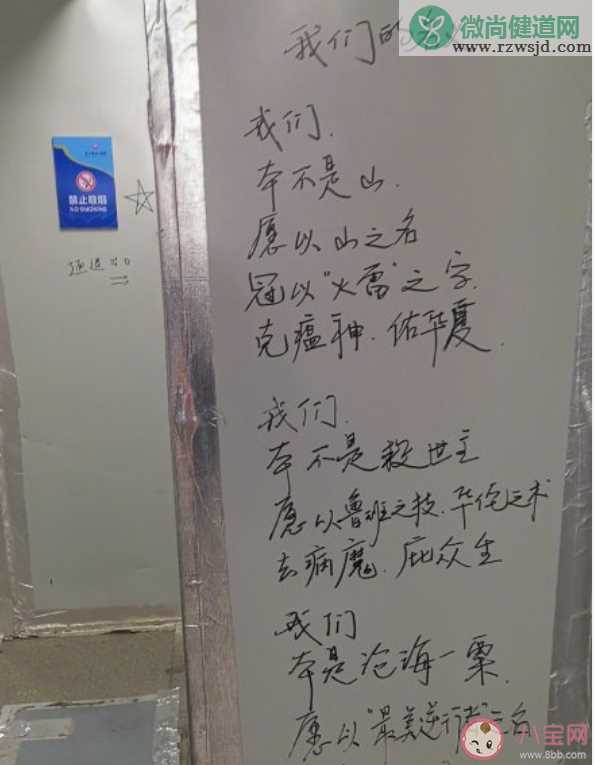 微尚健道网
www.rzwsjd.com
我们的
我们.
本不是山.
愿以山之名
冠以“火雷”之字.
克瘟神.佑华夏.
禁止吸烟
NO SMOKING
通道
我们.
本不是救世主
愿以鲁班之技.华佗之术
去病魔.庇众生
我们
本是沧海一粟.
愿以“最美逆行者”之名
八宝网
www.8bb.com